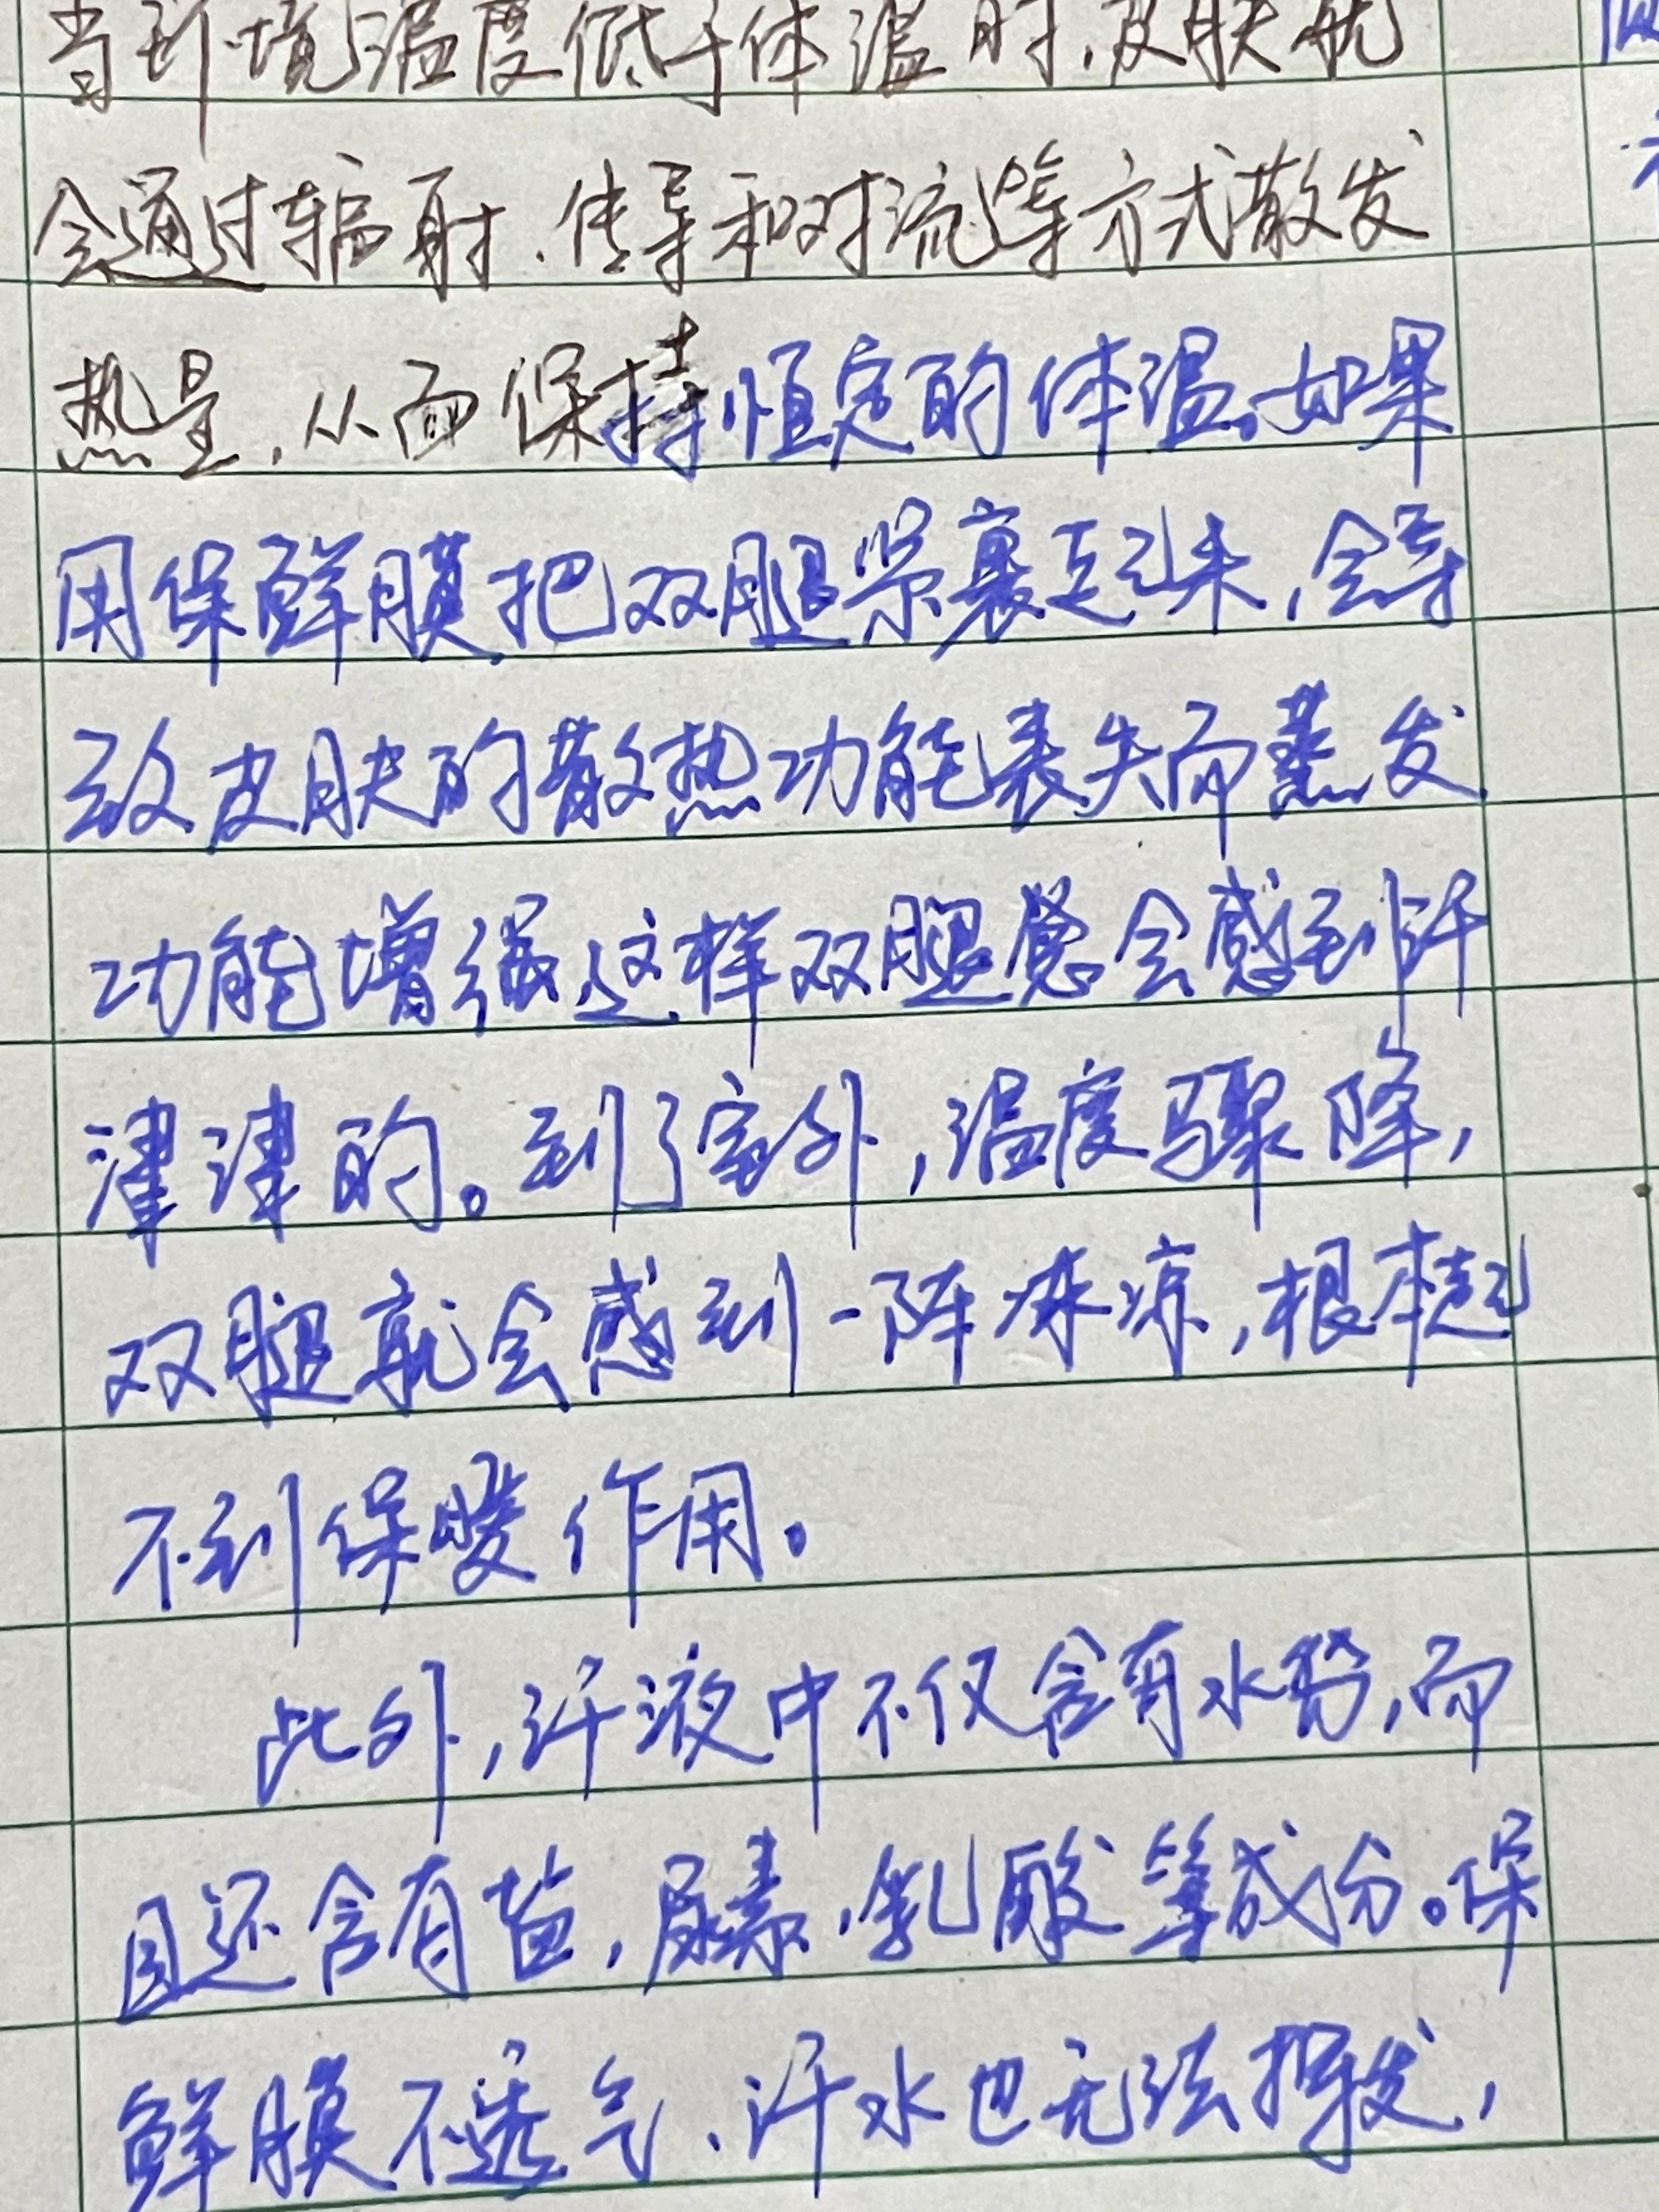 当到环境温度低于体温时,皮肤就
会通过辐射、传导和对流等方式散发
热量,从而保持恒定的体温。如果
用保鲜膜把双腿紧裹起来,会导
致皮肤的散热功能丧失而蒸发
功能增强,这样双腿总会感到汗
津津的。到了室外,温度骤降,
双腿就会感到一阵冰凉,根本起
不到保暖作用。
此外,汗液中不仅含有水份,而
且还含有盐,尿素、乳酸等成分。保
鲜膜不透气、汗水也无法挥发,